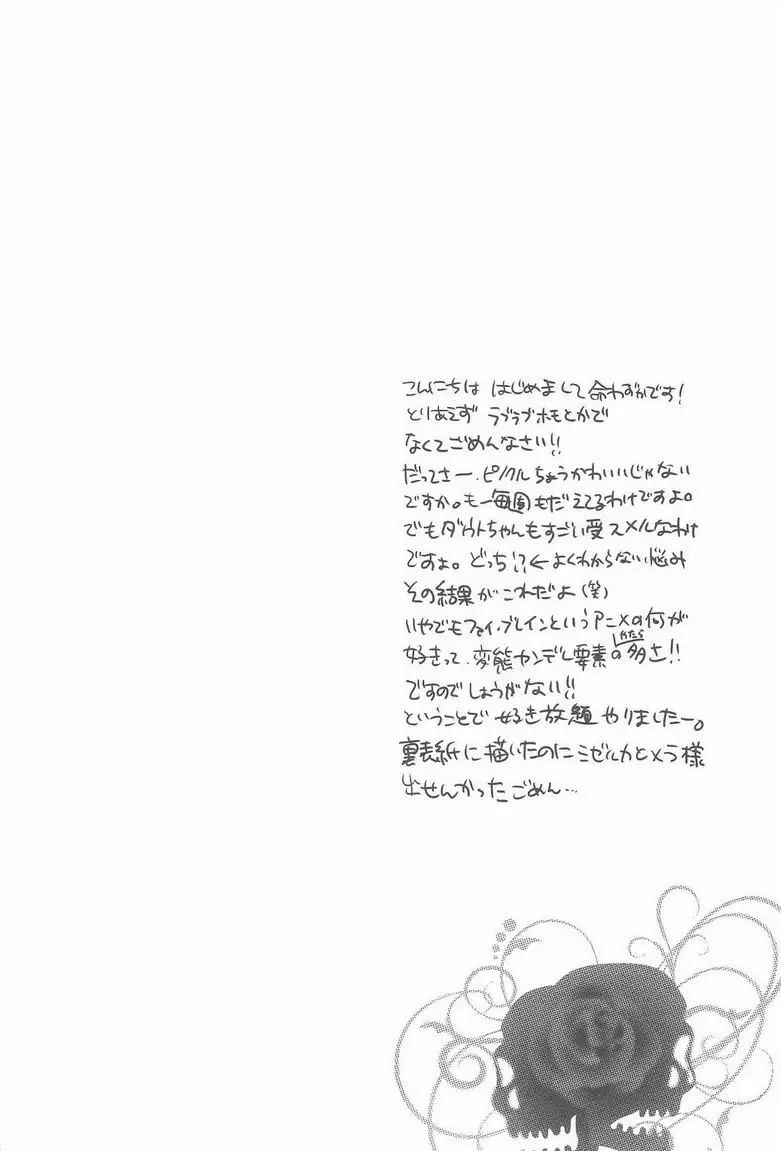 こんにちは はじめまして 命わずかです!
とりあえず ラブラブホモとかで
なくてごめんなさい!!
だってさー、ピノクルちょうかわいいじゃない
ですか。も一毎週もだえてるわけですよ。
でもダウトちゃんもすごい受スメルなわけ
ですよ。どっち!?←よくわからない悩み
その結果がこれだよ(笑)
いやでもファイ・ブレインというアニメの何が
好きって、変態ヤンデレ要素のやたら多さ!!
ですのでしょうがない!!
ということで好き放題やりましたー。
裏表紙に描いたのにミゼルカとメラ様
出せんかったごめん…